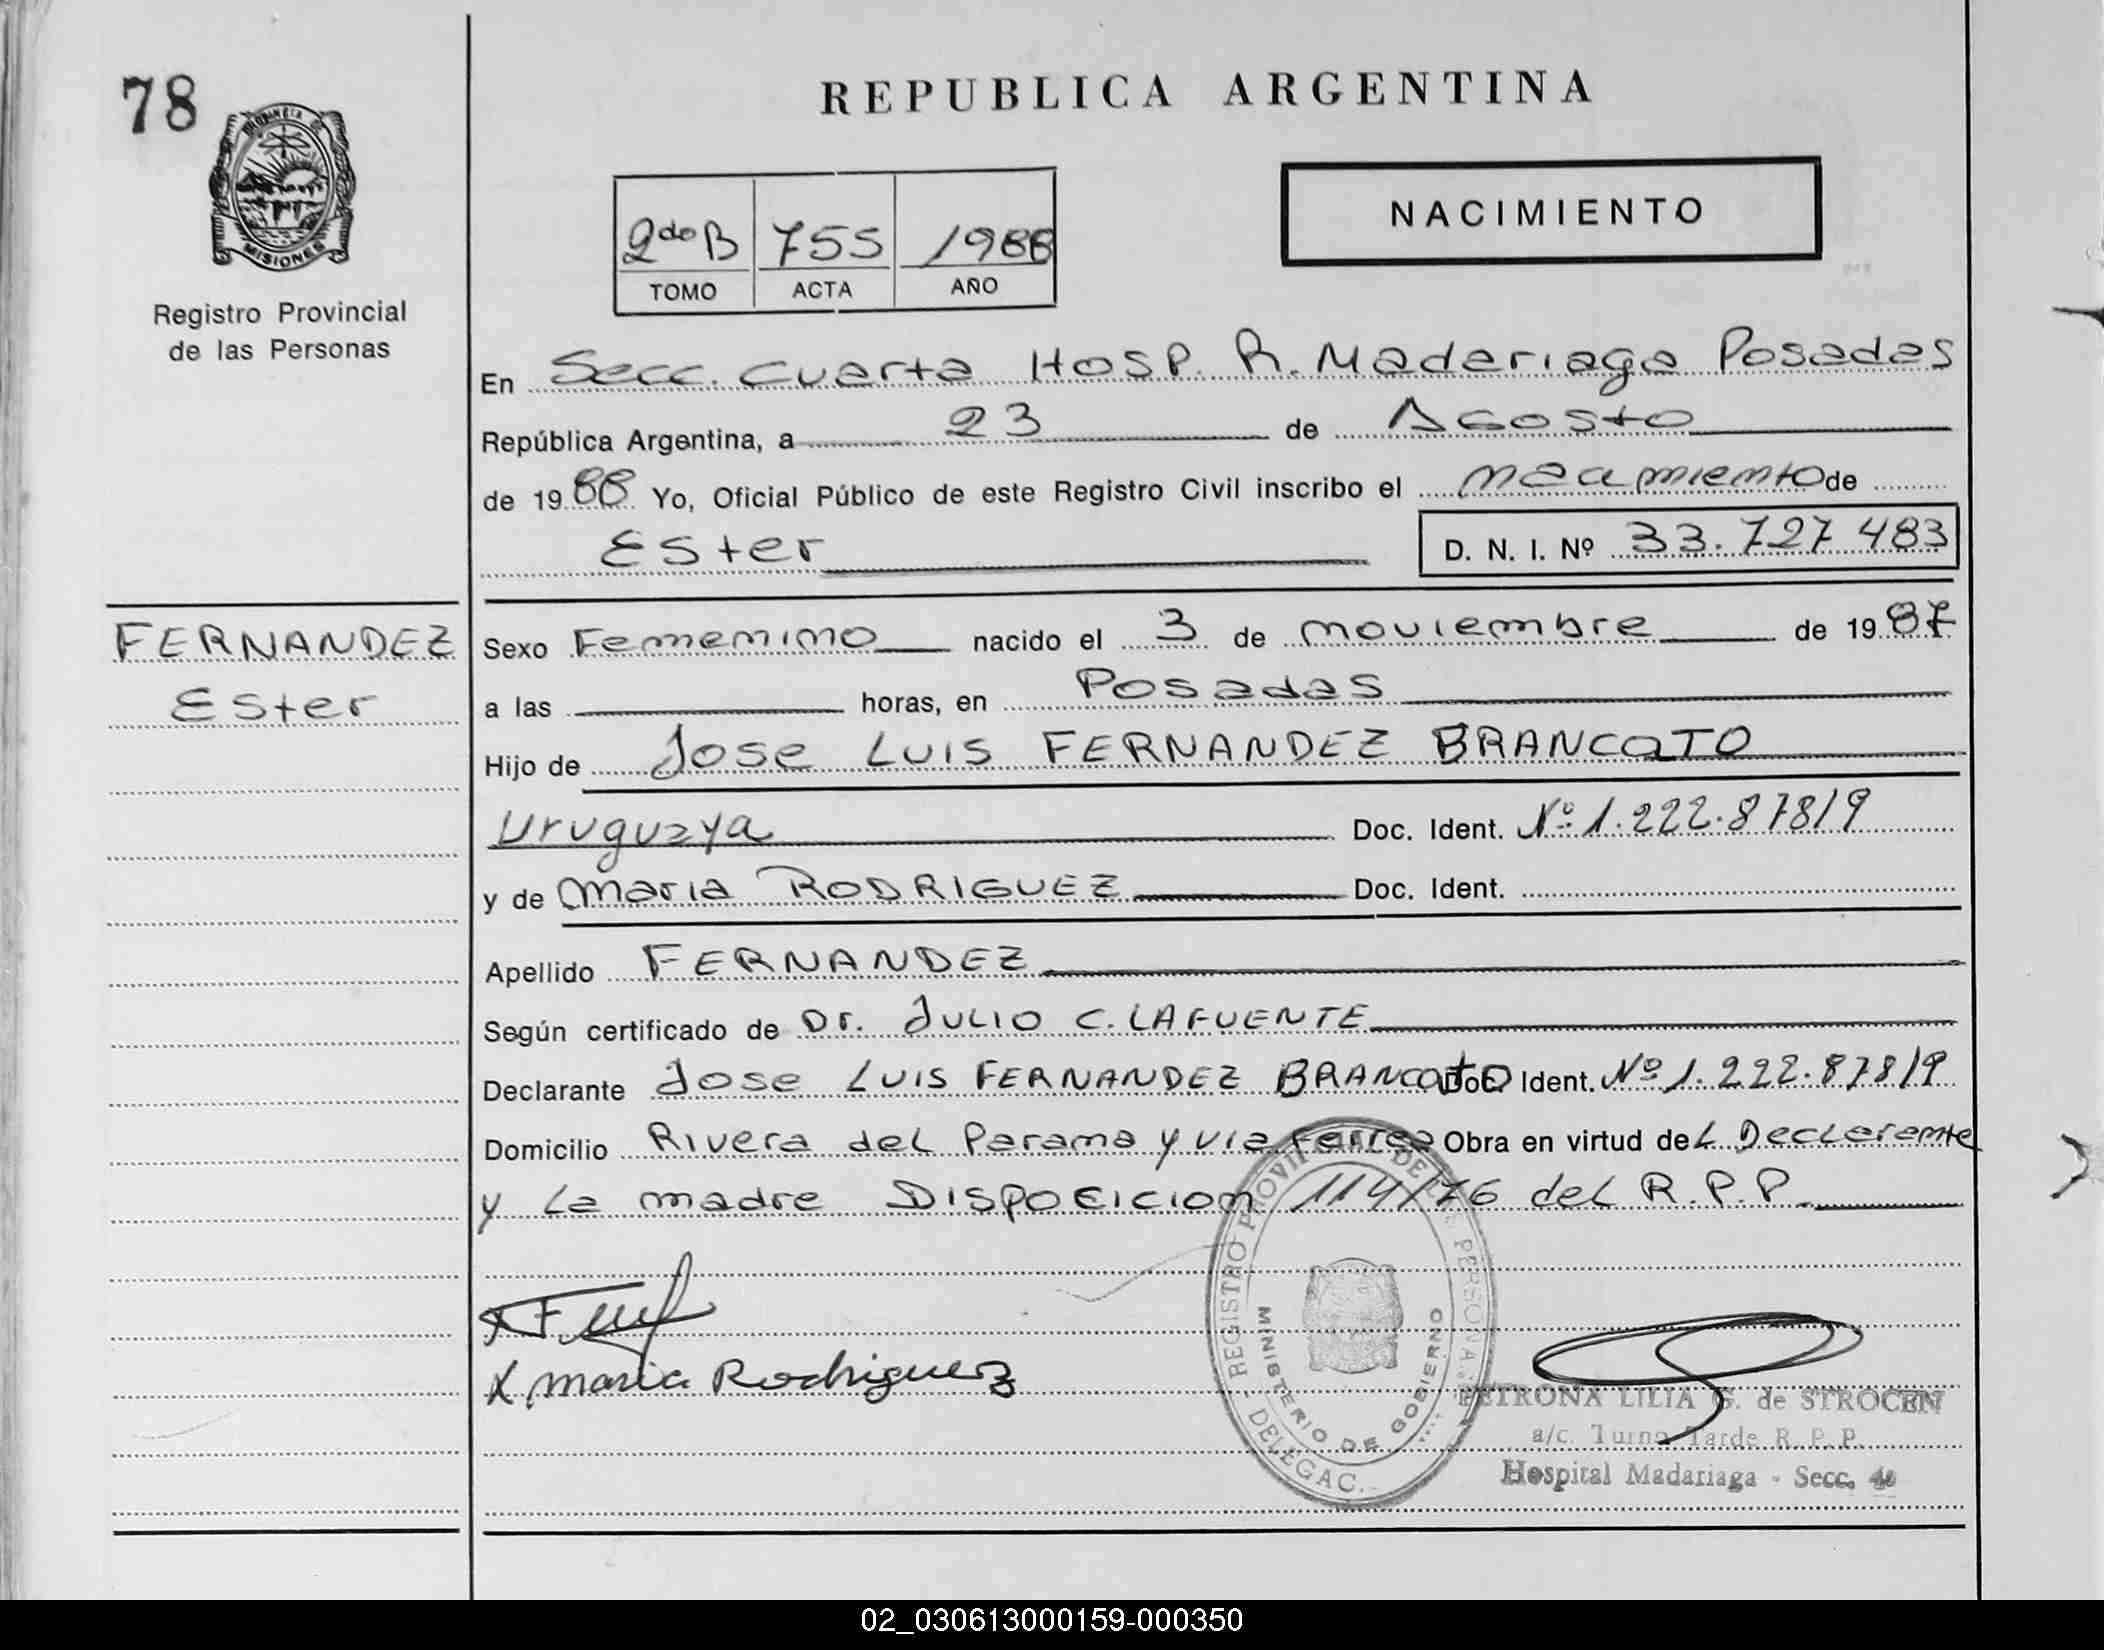 78
PROVINCIA DE
MISIONES
Registro Provincial
de las Personas
REPUBLICA ARGENTINA
2do B 755 1988
TOMO ACTA AÑO
NACIMIENTO
En Secc. cuarta Hosp. R. Madariaga Posadas
República Argentina, a 23 de Agosto
de 1988 Yo, Oficial Público de este Registro Civil inscribo el nacimiento de
Ester D. N. I. Nº 33.727 483
FERNANDEZ
Ester
Sexo Femenino nacido el 3 de noviembre de 1987
a las horas, en Posadas
Hijo de Jose LUIS FERNANDEZ BRANCATO
Uruguaya Doc. Ident. Nº 1.222.878/9
y de Maria RODRIGUEZ Doc. Ident.
Apellido FERNANDEZ
Según certificado de Dr. JULIO C. LAFUENTE
Declarante Jose LUIS FERNANDEZ BRANCATO Doc. Ident. Nº 1.222.878/9
Domicilio Rivera del Parana y via ferrea Obra en virtud del Declarante
y la madre Disposicion 114/76 del R.P.P.
X maria Rodriguez
REGISTRO PROVINCIAL DE LAS PERSONAS
MINISTERIO DE GOBIERNO
DELEGAC.
PETRONA LILIA G. de STROCEN
a/c. Turno Tarde R. P. P.
Hospital Madariaga - Secc.
02_030613000159-000350